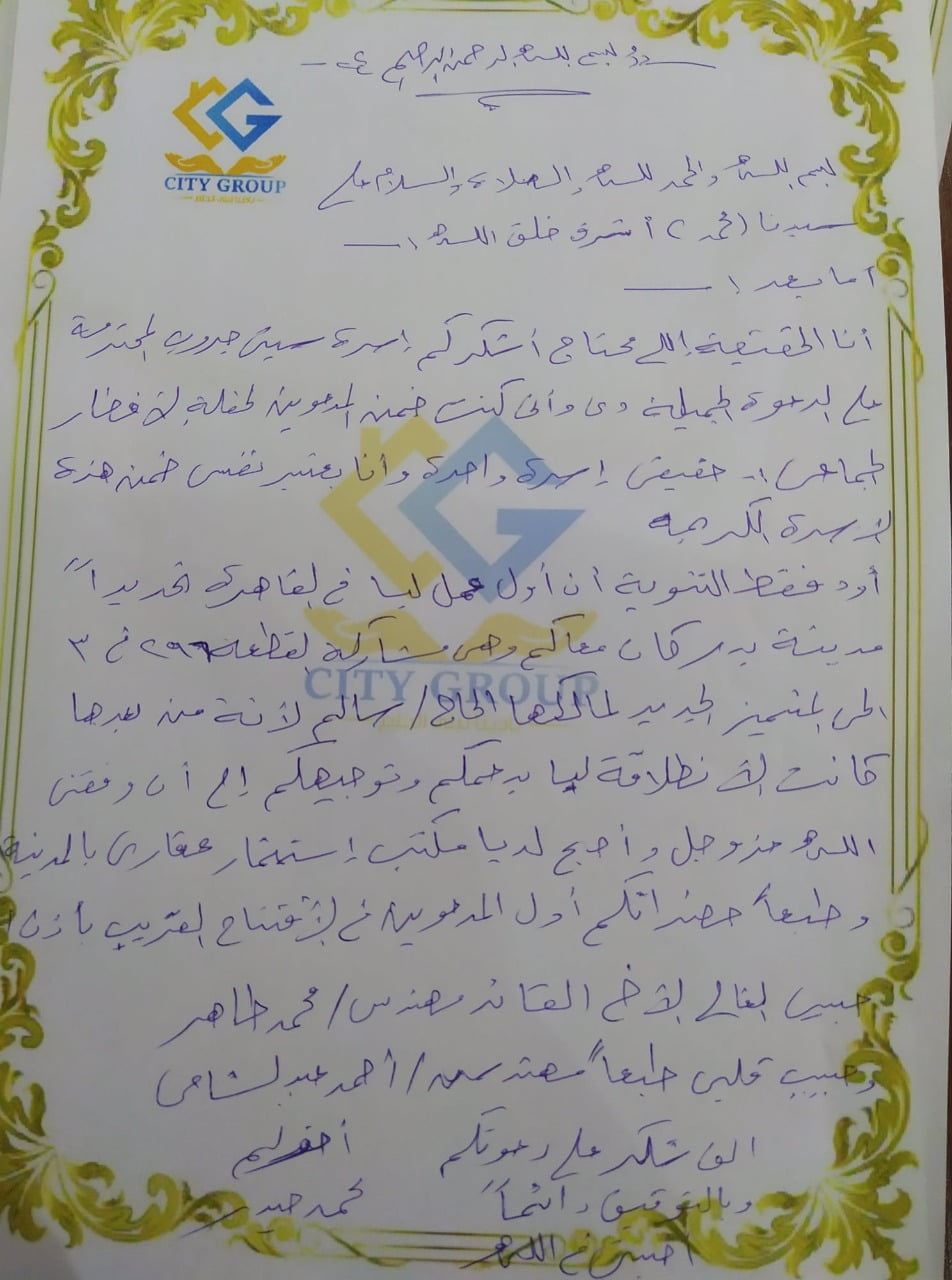 بسم الله الرحمن الرحيم
CITY GROUP
بسم الله والحمد لله والصلاة والسلام على
سيدنا (محمد) أشرف خلق الله ،
أما بعد ،
أنا الحقيقة اللى محتاج أشكركم إسرة سيتى جروب المحترمة
على الدعوة الجميلة دى وأنى كنت ضمن المدعوين لحفلة الأفطار
الجماعى .. حقيقى إسرة واحدة وأنا بعتبر نفسى ضمن هذة
الأسرة الكريمه
أود فقط التنوية أن أول عمل ليا فى القاهرة تحديداً
مدينة بدر كان معاكم وهى مشاركة لقطعه ٢٩٩ ف ٣
الحى المتميز الجديد لمالكها الحاج / سالم لأنة من بعدها
كانت الأنطلاقة ليا بدعمكم وتوجيهكم إلى أن وفقنى
CITY GROUP
الله عز وجل وأصبح لديا مكتب إستثمار عقارى بالمدينة
وطبعاً حضراتكم أول المدعوين فى الأفتتاح القريب بأذن
حبيبى الغالى الأخ القائد مهندس / محمد طاهر
وحبيب قلبى طبعاً مهندس / أحمد عبد الشافى
الف شكر على دعوتكم
وبالتوفيق دائماً
أحبتى فى الله
أخوكم
محمد حيدر